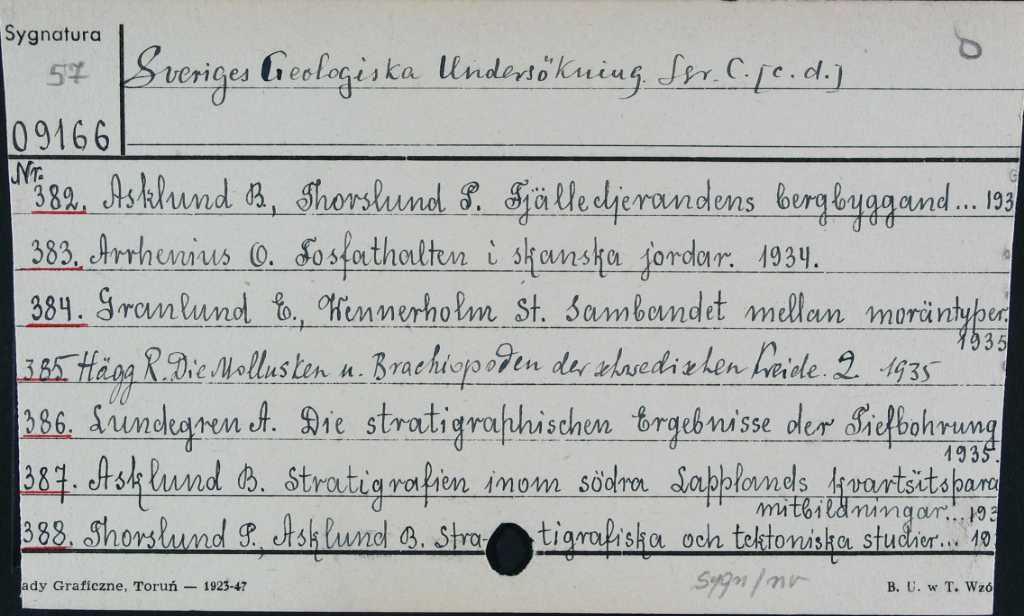 Sygnatura
57
8
Sveriges Geologiska Undersökning. Ser. C. [c. d.]
09166
Nr.
382. Asklund B., Thorslund P. Fjällkedjerandens bergbyggand... 193
383. Arrhenius O. Fosfathalten i skanska jordar. 1934.
384. Granlund E., Wennerholm St. Sambandet mellan moräntyper.
1935
385 Hägg R. Die Mollusken u. Brachiopoden der schwedischen Kreide. 2 1935
386. Lundegren A. Die stratigraphischen Ergebnisse der Tiefbohrung
1935.
387. Asklund B. Stratigrafien inom södra Lapplands kvartsitspara
mitbildningar... 193
388. Thorslund P., Asklund B. Stra- tigrafiska och tektoniska studier... 19
ady Graficzne, Toruń — 1923-47
sygn/nv
B. U. w T. Wzó